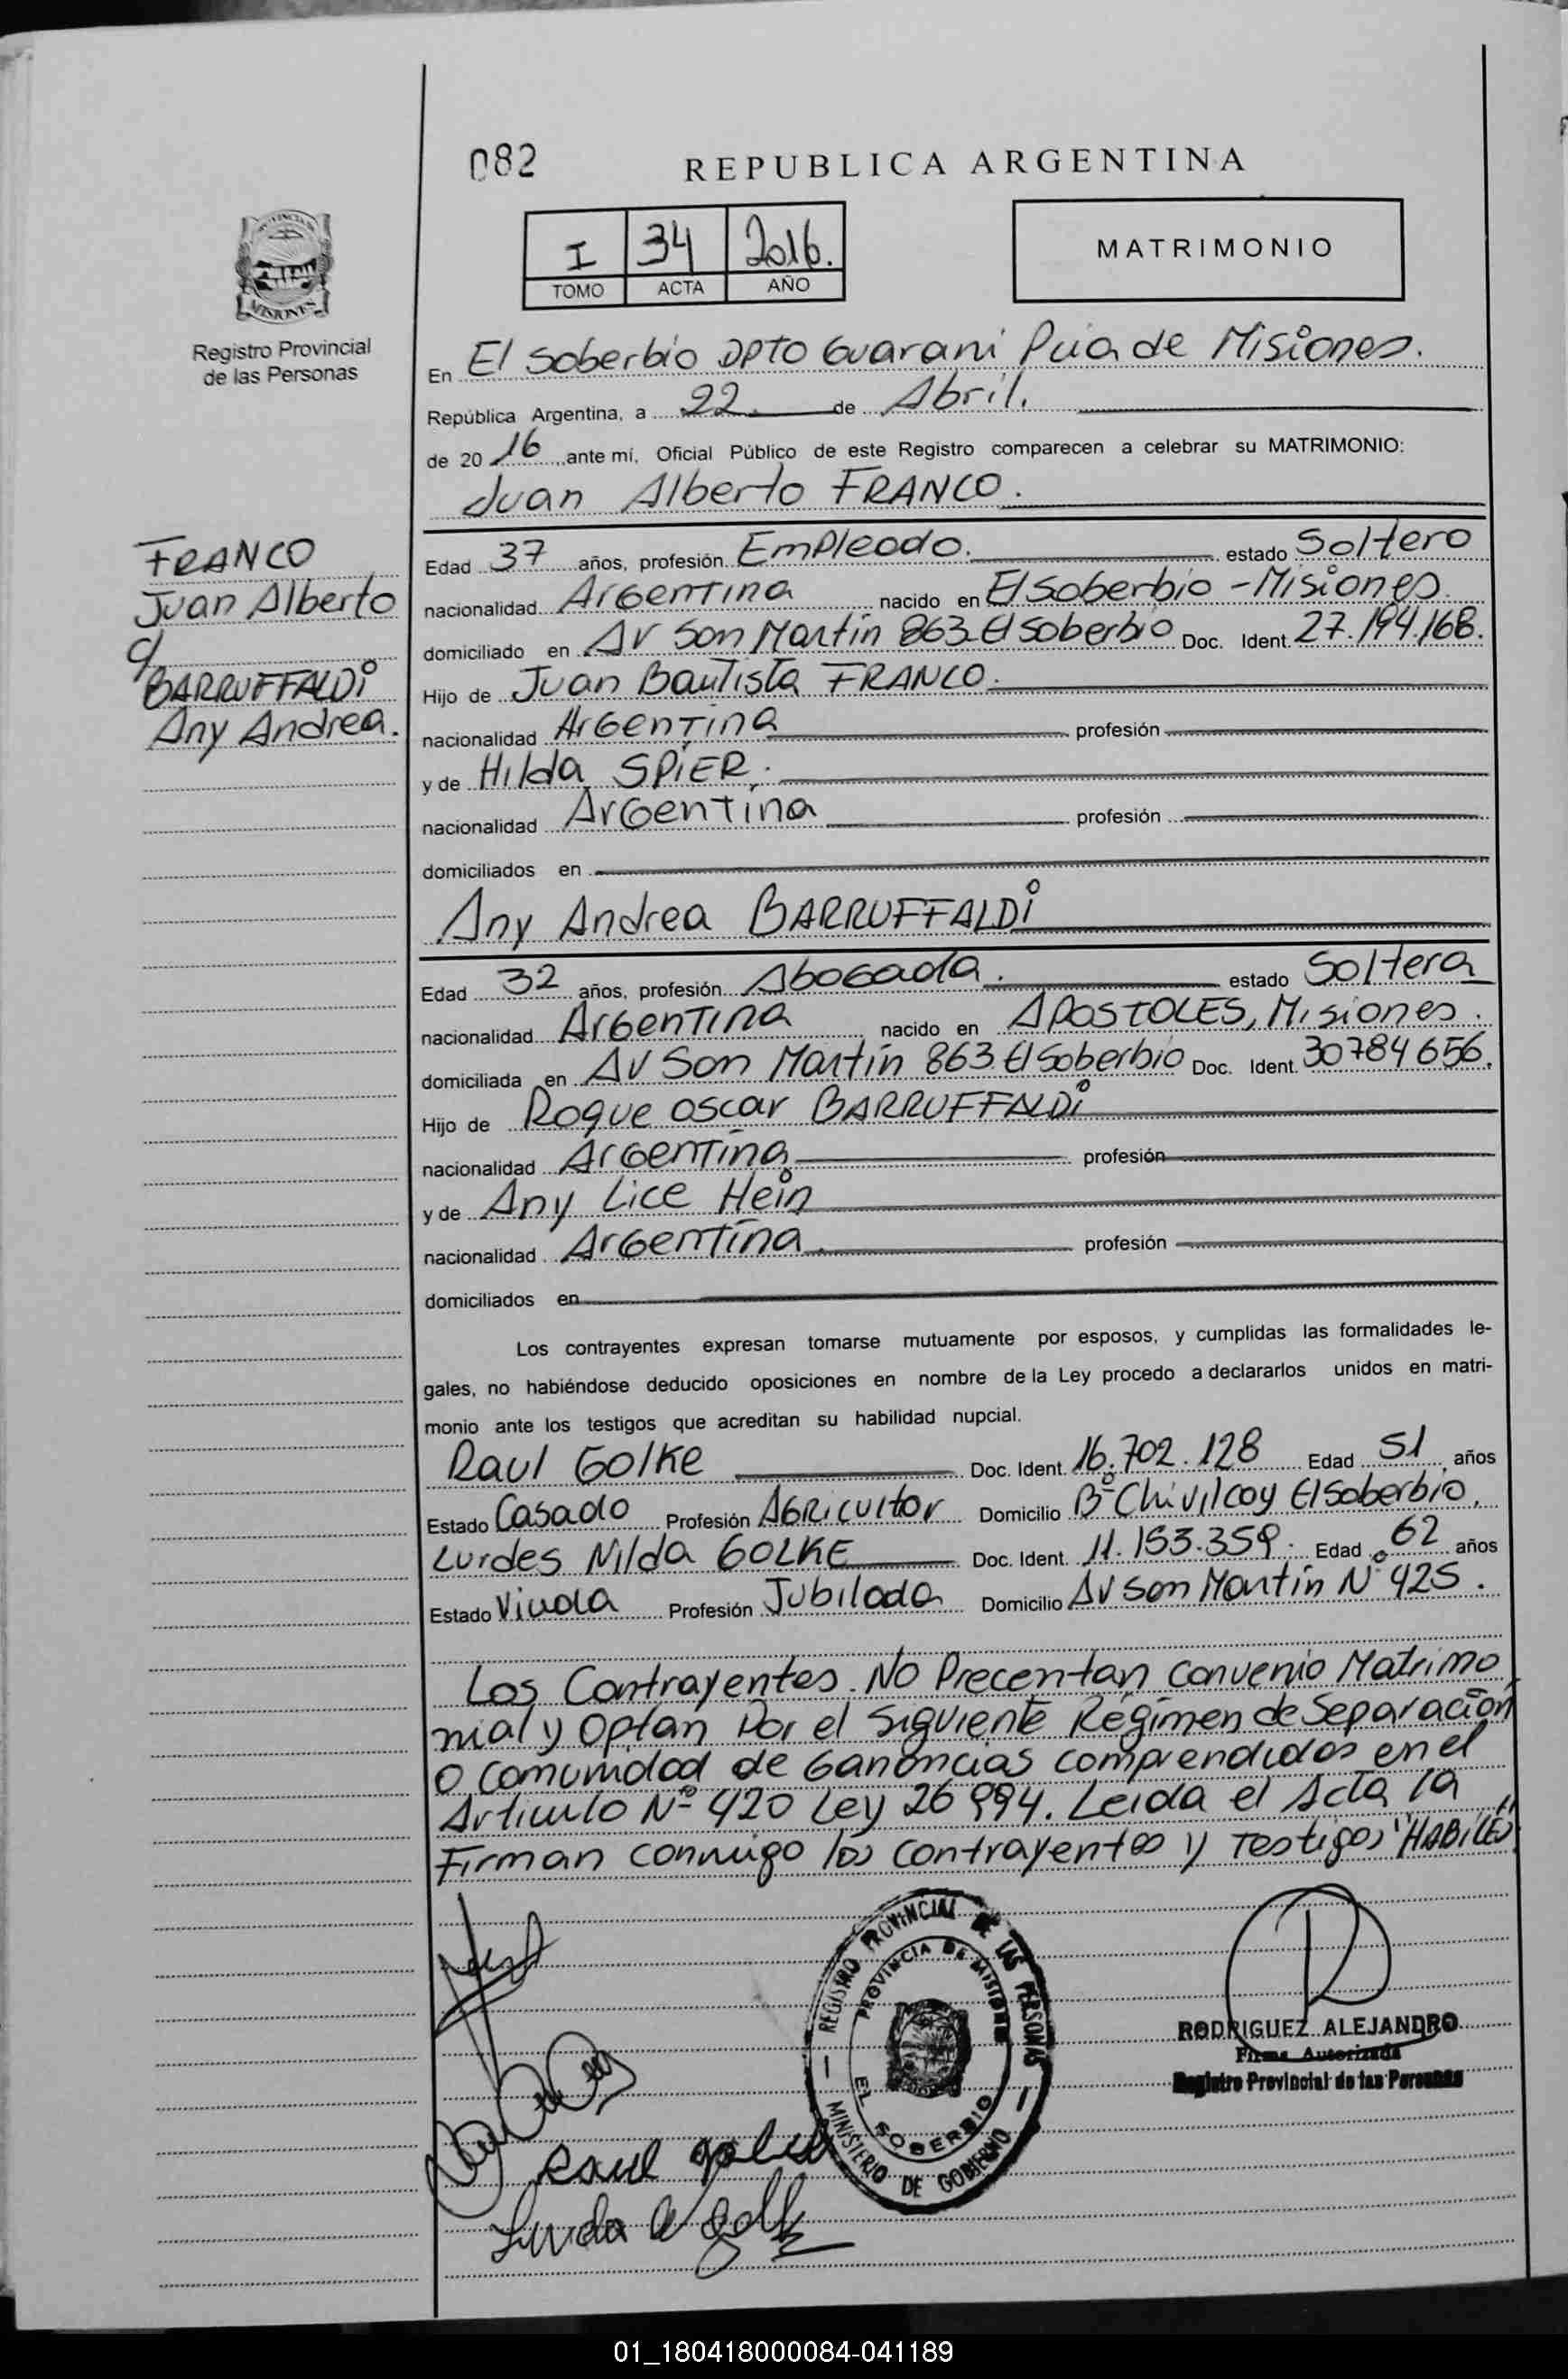 082
REPUBLICA ARGENTINA
I 34 2016.
TOMO ACTA AÑO
MATRIMONIO
MISIONES
Registro Provincial
de las Personas
En El Soberbio DPTO Guarani Pcia de Misiones.
República Argentina, a 22 de Abril.
de 20 16 ante mí, Oficial Público de este Registro comparecen a celebrar su MATRIMONIO:
Juan Alberto FRANCO.
FRANCO
Juan Alberto
c/
BARRUFFALDI
Any Andrea.
Edad 37 años, profesión Empleado. estado Soltero
nacionalidad Argentina nacido en El Soberbio - Misiones.
domiciliado en AV San Martín 863 El Soberbio Doc. Ident. 27.194.168.
Hijo de Juan Bautista FRANCO.
nacionalidad Argentina profesión
y de Hilda SPIER.
nacionalidad Argentina profesión
domiciliados en
Any Andrea BARRUFFALDI
Edad 32 años, profesión Abogada. estado Soltera
nacionalidad Argentina nacido en APOSTOLES, Misiones.
domiciliada en AV San Martín 863 El Soberbio Doc. Ident. 30784656.
Hijo de Roque Oscar BARRUFFALDI
nacionalidad Argentina profesión
y de Any Lice Hein
nacionalidad Argentina. profesión
domiciliados en
Los contrayentes expresan tomarse mutuamente por esposos, y cumplidas las formalidades le-
gales, no habiéndose deducido oposiciones en nombre de la Ley procedo a declararlos unidos en matri-
monio ante los testigos que acreditan su habilidad nupcial.
Raul Golke Doc. Ident. 16.702.128 Edad 51 años
Estado Casado Profesión Agricultor Domicilio Bº Chivilcoy El Soberbio.
Lurdes Nilda GOLKE Doc. Ident. 11.153.359. Edad 62 años
Estado Viuda Profesión Jubilada Domicilio AV San Martín Nº 425.
Los Contrayentes. No Precentan convenio Matrimo
nial y Optan Por el siguiente Régimen de Separación
o comunidad de Ganancias comprendidos en el
Articulo Nº 420 Ley 26994. Leida el Acta la
Firman conmigo los contrayentes y Testigos "HABILES"
REGISTRO PROVINCIAL DE LAS PERSONAS
PROVINCIA DE MISIONES
EL SOBERBIO
MINISTERIO DE GOBIERNO
RODRIGUEZ ALEJANDRO
Firma Autorizada
Registro Provincial de las Personas
Raul Golke
01_180418000084-041189